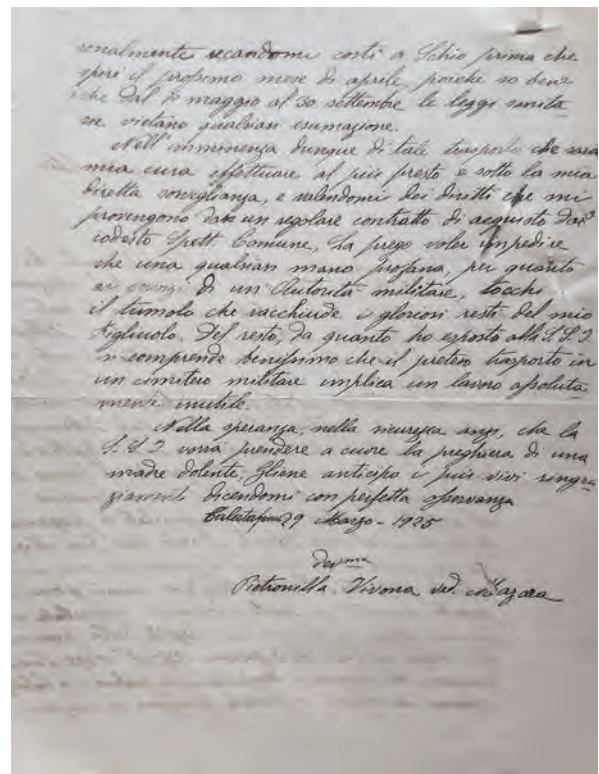 sonalmente recandomi costì a Schio prima che
spiri il prossimo mese di aprile, poichè so bene
che dal 1° maggio al 30 settembre le leggi sanita-
rie vietano qualsiasi esumazione.
Nell'imminenza dunque di tale trasporto che sarà
mia cura effettuare al più presto e sotto la mia
diretta sorveglianza, e valendomi dei diritti che mi
provengono da un regolare contratto di acquisto da
codesto Spett. Comune, La prego voler impedire
che una qualsiasi mano profana, per quanto
di un'Autorità militare, tocchi
il tumolo che racchiude i gloriosi resti del mio
Figliuolo. Del resto, da quanto ho esposto alla S.S.I.
si comprende benissimo che il preteso trasporto in
un cimitero militare implica un lavoro assoluta-
mente inutile.
Nella speranza, nella sicurezza anzi, che la
S.S.I. vorrà prendere a cuore la preghiera di una
madre dolente, Gliene anticipo i più vivi ringra-
ziamenti dicendomi con perfetta osservanza
29 Marzo - 1925
dev.ma
Pietronilla Vivona ved. Mazara